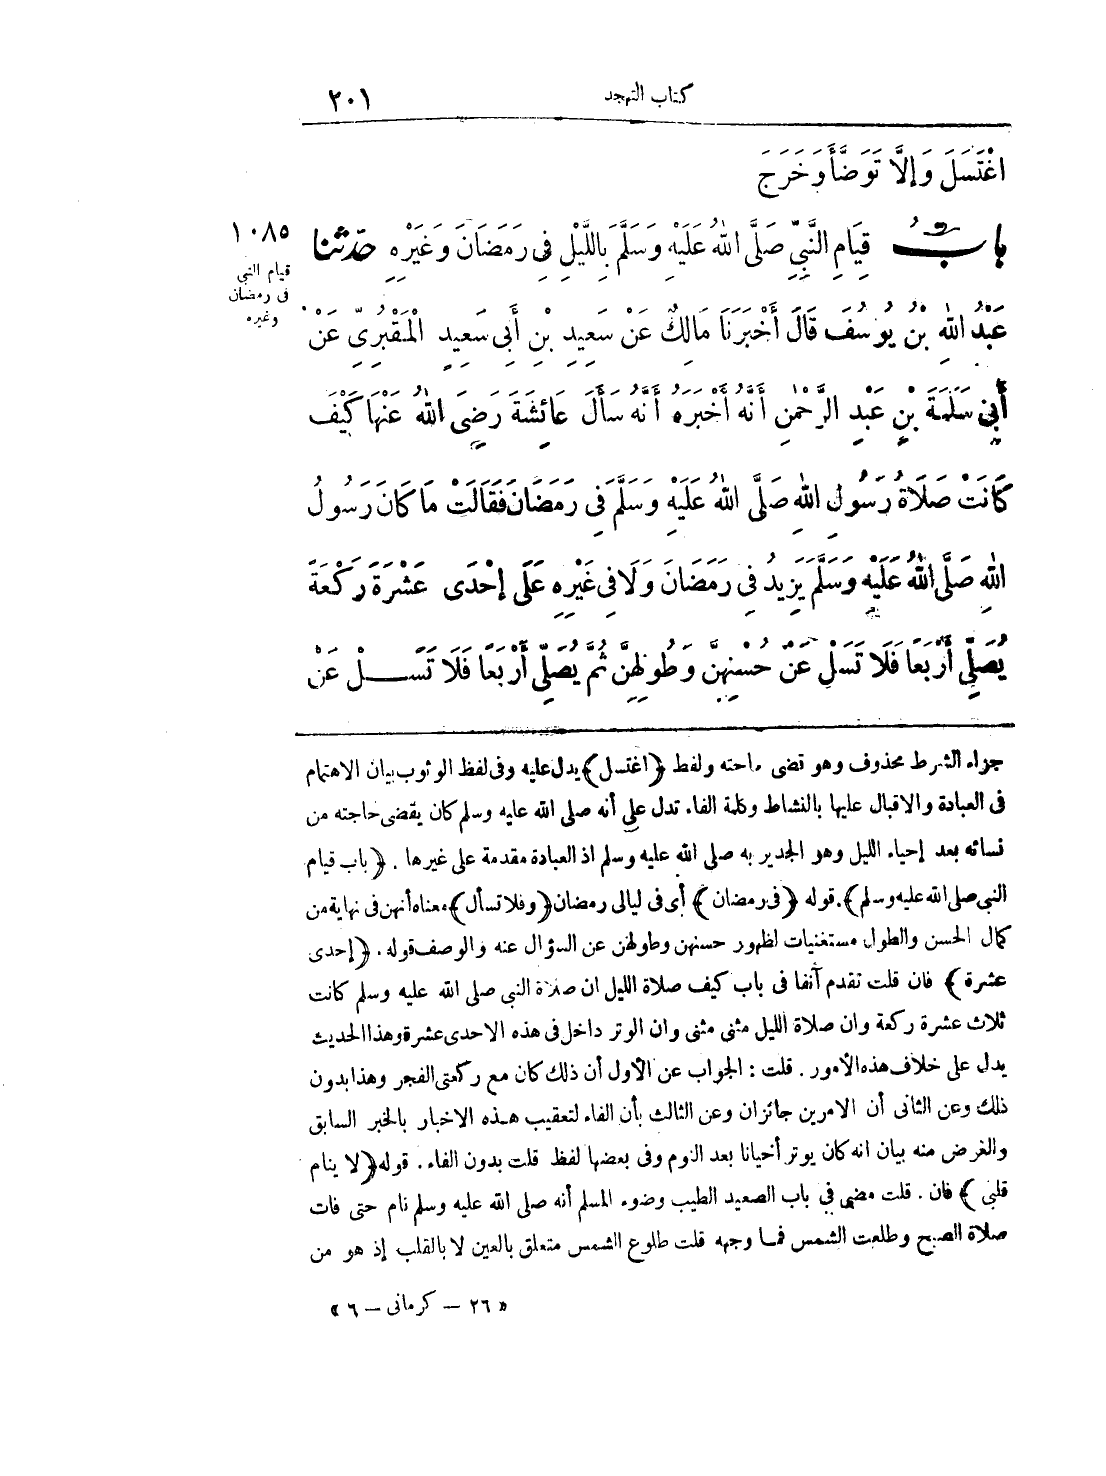 كتاب التهجد ٢٠١
اغْتَسَلَ وَإِلَّا تَوَضَّأَ وَخَرَجَ
بَابُ قِيَامِ النَّبِيِّ صَلَّى اللهُ عَلَيْهِ وَسَلَّمَ بِاللَّيْلِ فِي رَمَضَانَ وَغَيْرِهِ حَدَّثَنَا
١٠٨٥
قيام النبي
فى رمضان
وغيره
عَبْدُ اللهِ بْنُ يُوسُفَ قَالَ أَخْبَرَنَا مَالِكٌ عَنْ سَعِيدِ بْنِ أَبِي سَعِيدٍ الْمَقْبُرِيِّ عَنْ
أَبِي سَلَمَةَ بْنِ عَبْدِ الرَّحْمٰنِ أَنَّهُ أَخْبَرَهُ أَنَّهُ سَأَلَ عَائِشَةَ رَضِيَ اللهُ عَنْهَا كَيْفَ
كَانَتْ صَلَاةُ رَسُولِ اللهِ صَلَّى اللهُ عَلَيْهِ وَسَلَّمَ فِي رَمَضَانَ فَقَالَتْ مَا كَانَ رَسُولُ
اللهِ صَلَّى اللهُ عَلَيْهِ وَسَلَّمَ يَزِيدُ فِي رَمَضَانَ وَلَا فِي غَيْرِهِ عَلَى إِحْدَى عَشْرَةَ رَكْعَةً
يُصَلِّي أَرْبَعًا فَلَا تَسَلْ عَنْ حُسْنِهِنَّ وَطُولِهِنَّ ثُمَّ يُصَلِّي أَرْبَعًا فَلَا تَسَلْ عَنْ
جزاء الشرط محذوف وهو قضى حاجته ولفظ ﴿اغتسل﴾ يدل عليه وفى لفظ الوثوب بيان الاهتمام
فى العبادة والاقبال عليها بالنشاط وكلمة الفاء تدل على أنه صلى الله عليه وسلم كان يقضى حاجته من
نسائه بعد إحياء الليل وهو الجدير به صلى الله عليه وسلم اذ العبادة مقدمة على غيرها . ﴿باب قيام
النبى صلى الله عليه وسلم﴾. قوله ﴿فى رمضان﴾ أى فى ليالى رمضان ﴿وفلا تسأل﴾ معناه أنهن فى نهاية من
كمال الحسن والطول مستغنيات لظهور حسنهن وطولهن عن السؤال عنه والوصف قوله . ﴿إحدى
عشرة﴾ فان قلت تقدم آنفا فى باب كيف صلاة الليل ان صلاة النبى صلى الله عليه وسلم كانت
ثلاث عشرة ركعة وان صلاة الليل مثنى مثنى وان الوتر داخل فى هذه الاحدى عشرة وهذا الحديث
يدل على خلاف هذه الأمور . قلت : الجواب عن الأول أن ذلك كان مع ركعتى الفجر وهذا بدون
ذلك وعن الثانى أن الامرين جائزان وعن الثالث بأن الفاء لتعقيب هذه الاخبار بالخبر السابق
والغرض منه بيان انه كان يوتر أحيانا بعد النوم وفى بعضها لفظ قلت بدون الفاء . قوله ﴿لا ينام
قلبى﴾ فان . قلت مضى فى باب الصعيد الطيب وضوء المسلم أنه صلى الله عليه وسلم نام حتى فات
صلاة الصبح وطلعت الشمس فما وجهه قلت طلوع الشمس متعلق بالعين لا بالقلب إذ هو من
« ٢٦ – كرمانى – ٦ »